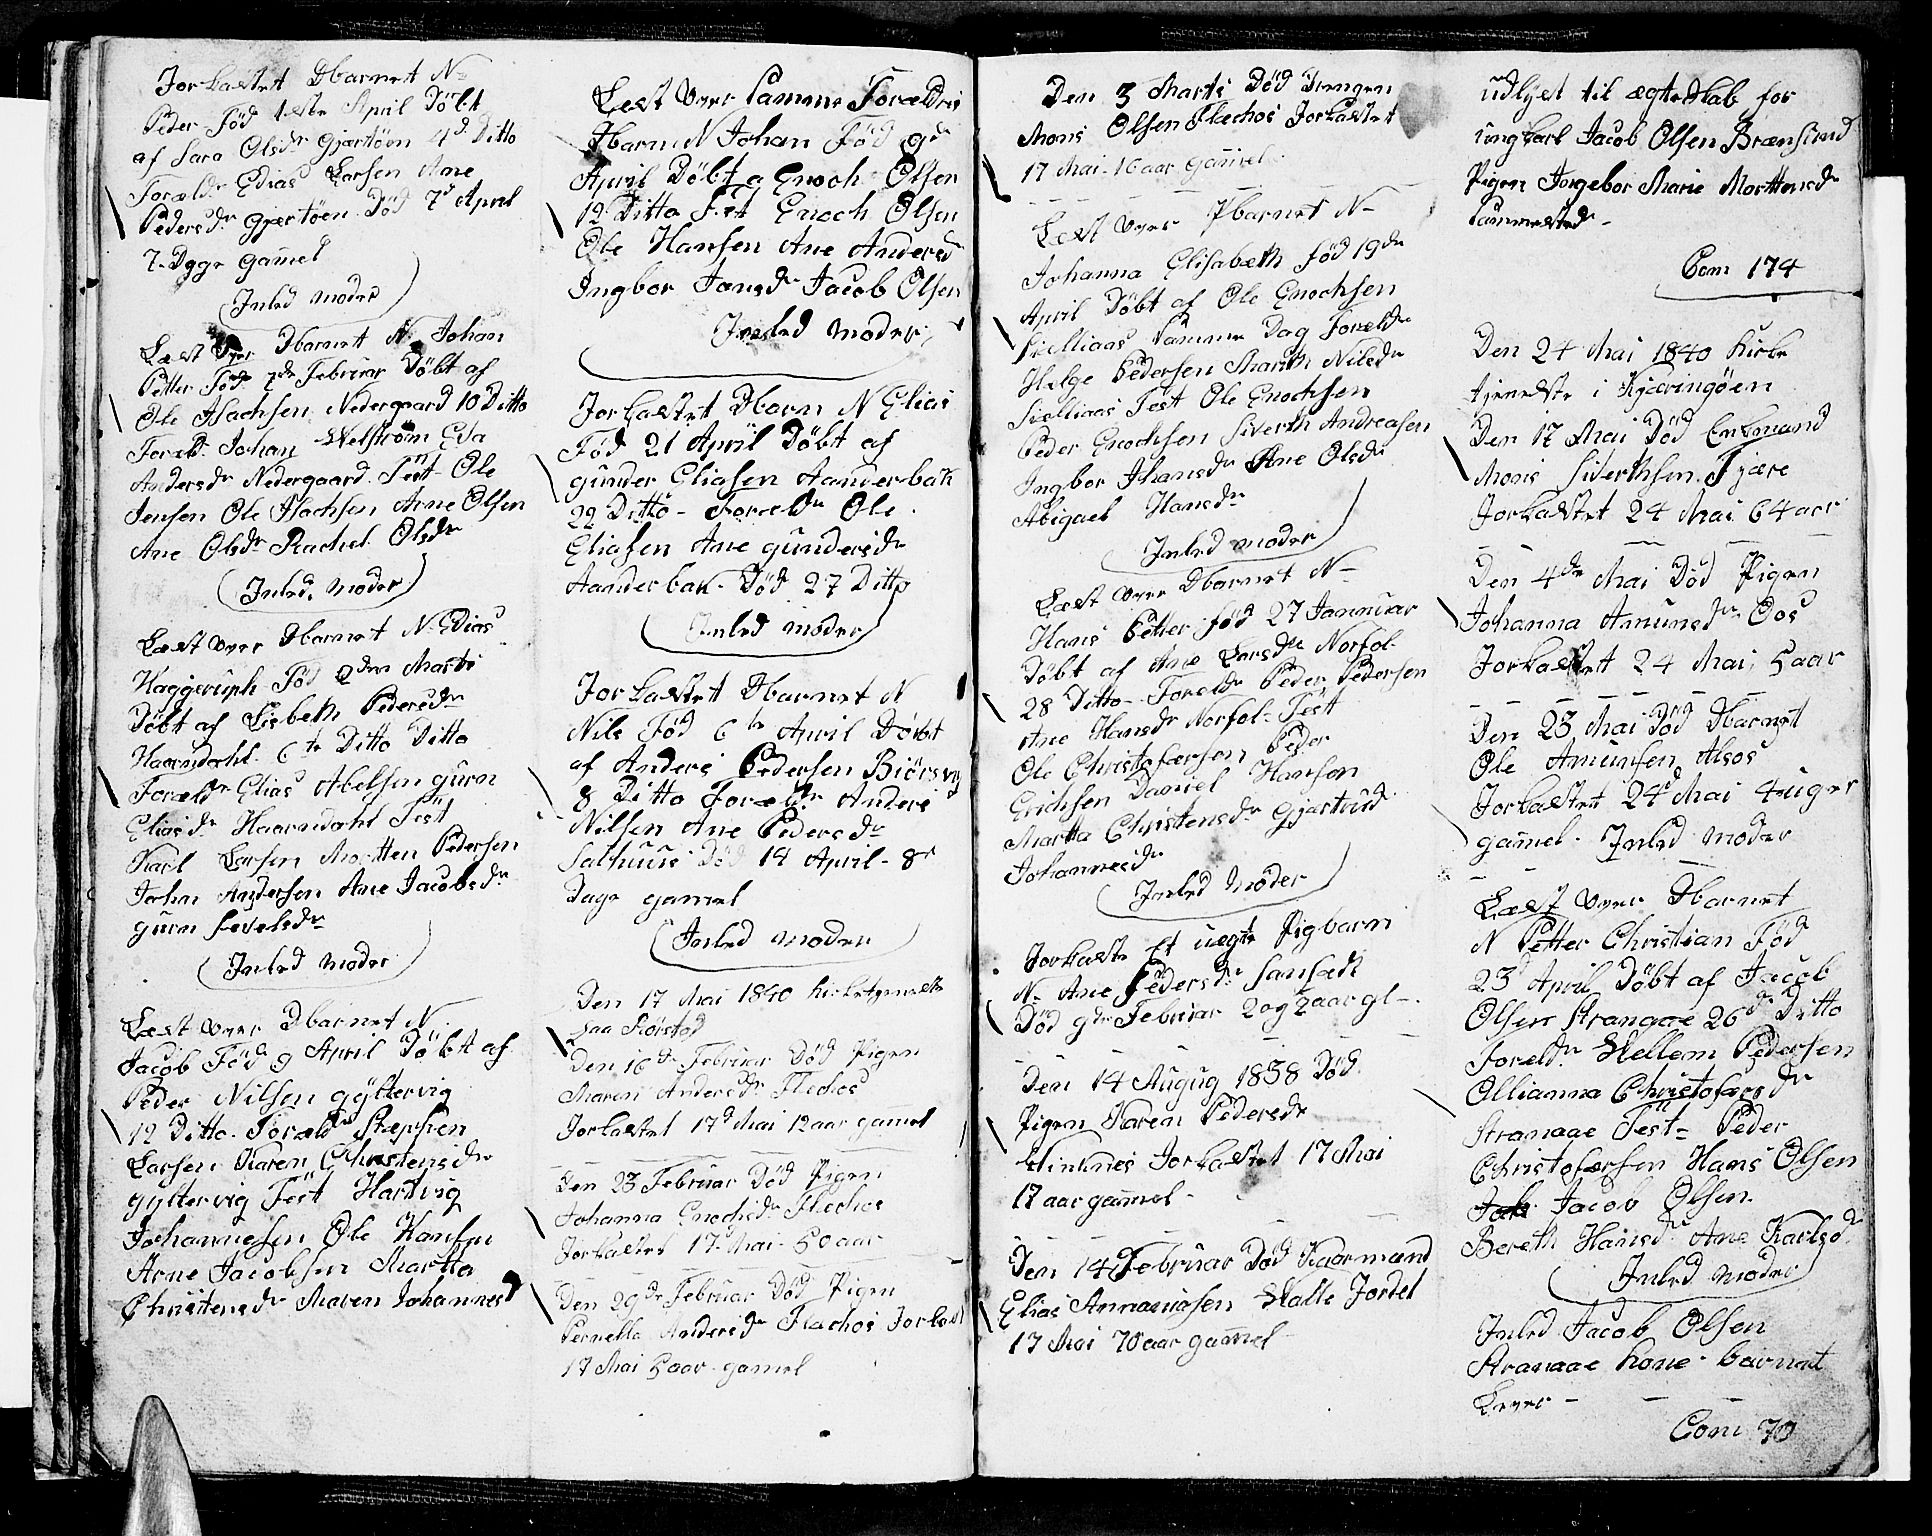 Jorkastet Dbarnet N-
Peder Fød 1ste April Døbt
af Sara Olsdr Gjærtøen 4d Ditto
Foreldr Edias Larsen Ane
Pedersdr Gjærtøen Død 7d April
7 Dage gamel
Inled moder
Læst over Dbarnet N- Johan
Petter Fød 7de Februar Døbt af
Ole Isachsen Nedergaard 10 Ditto
Foreld. Johan Welstrøm Eda
Andersdr Nedergaard. Test Ole
Jensen Ole Isachsen Arne Olsen
Ane Olsdr Rachel Olsdr
Inled. moder
Læst over Dbarnet N- Edias
Haggeruph Fød 2den Marti
Døbt af Lisbeth Pedersdr
Haarndahl 6te Ditto Ditto
Foreldr Elias Abelsen gurn
Eliasdr Haarndahl Test
Karl Larsen Mortten Pedersen
John Andersen Ane Jacobsdr
gurn
Inled moder
Læst over Dbarnet N-
Jacob Fød 9 April Døbt af
Peder Nilsen gyltervig
12 Ditto. Foreldr Stephen
Larsen Karen Christensdr
gyltervig Test Hartvig
Johannesen Ole Hansen
Arne Jacobsen Martta
Christensdr Maren Johannesd
Læst over Samme Foreldris
Dbarn N Johan Fød 9de
April Døbt a Enoch Olsen
12 Ditto Test Enoch Olsen
Ole Hansen Ane Andersd
Ingbor Jonsdr Jacob Olsen
Inled moder
Jorkastet Dbarn N Elias
Fød 21 April Døbt af
gunder Eliasen Aanderbak
22 Ditto - Foreldr Ole
Eliasen Ane gundersdr
Aanderbak - Død 27 Ditto
Inled moder
Jorkastet Dbarnet N
Nils Fød 6te April Døbt
af Anders Pedersen Biørsvig
8 Ditto Foreldr Anders
Nilsen Ane Pedersdr
Salhuus Død 14 April - 8t
Dage gamel
Inled moder
Den 17 Mai 1840 kirketjeneste
paa Rørstad
Den 16de Februar Død Pigen
Maren Andersdr Flechos
Jorkastet 17d Mai 12 aar gamel
Den 23 Februar Død Pigen
Johanna Enochsdr Flechos
Jorkastet 17 Mai - 50 aar
Den 29de Februar Død Pigen
Pernella Andersdr Flachos Jorkast
17 Mai 5 aar gamel
Den 3 Marti Død Drengen
Mons Olsen Flechos Jorkastet
17 Mai - 16 aar gamel
Læst over Pbarnet N-
Johanna Elisabeth Fød 19de
April Døbt af Ole Enochsen
Samme Dag Foreldr
Helge Pedersen Marith Nilsdr
Test Ole Enochsen
Peder Enochsen Siverth Andreasen
Ingbor Ihansdr Ane Olsdr
Abigael Hansdr
Inled moder
Læst over Dbarnet N-
Hans Petter Fød 27 Januar
Døbt af Ane Larsdr Norfol-
28 Ditto - Foreldr Peder Pedersen
Ane Hansdr Norfol - Test
Ole Christofersen Peder
Erichsen Daniel Hansen
Martta Christensdr Gjertrud
Johannesdr
Inled moder
Jorkaste Et uægte Pigbarn
N- Ane Pedersdr
Død 9de Februar 2 og 2 aar gl -
Den 14 Augug 1838 Død
Pigen Karen Pedersdr
Jorkastet 17 Mai
17 aar gammel -
Den 14 Februar Død Kaarmand
Elias Annaniasen Jordet
17 Mai 70 aar gammel
udlyst til ægteskab for
ungkarl Jacob Olsen Brænstrand
Pigen Ingebor Marie Morttensdr
Sammested -
Com 174
Den 24 Mai 1840 kirke
tjeneste i Kjæringøen
Den 17 Mai Død Enkmand
Mons Siverthsen Fjære
Jorkastet 24 Mai 64 aar
Den 4de Mai Død Pigen
Johanna Amunsdr Oos
Jorkastet 24 Mai, 5 aar
Den 23 Mai Død Dbarnet
Ole Amunsen Alsos
Jorkastet 24d Mai 4 uger
gamel - Inled moder
Læst over Dbarnet
N Petter Christian Fød
23d April Døbt af Jacob
Olsen Stranaae 26de Ditto
Foreldr Wellem Pedersen
Ollianna Christofersdr
Stranaae Test - Peder
Christofersen Hans Olsen
Jacob Olsen
Bereth Hansdr Ane Karlsd.
Inled moder
Inled Jacob Olsen
Stranaae kone - barnet
Lever -
Com 70